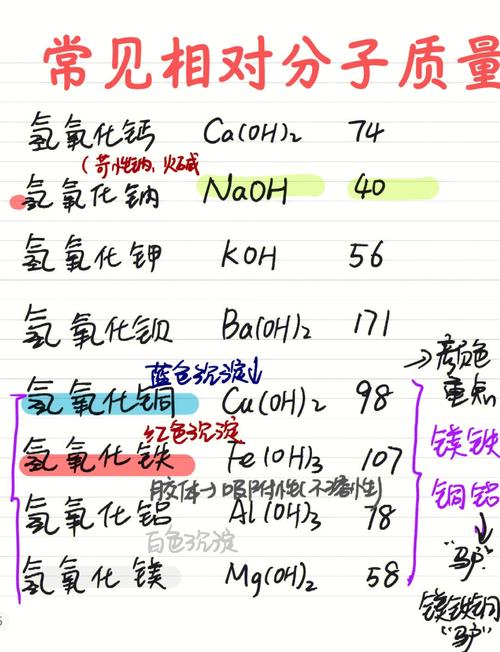 常见相对分子质量
氢氧化钙 Ca(OH)₂ 74
(苛性钠、火碱
氢氧化钠 NaOH 40
氢氧化钾 KOH 56
氢氧化钡 Ba(OH)₂ 171
蓝色沉淀↓
氢氧化铜 Cu(OH)₂ 98
红色沉淀
氢氧化铁 Fe(OH)₃ 107
胶体→吸附性(不溶性)
氢氧化铝 Al(OH)₃ 78
白色沉淀
氢氧化镁 Mg(OH)₂ 58
→颜色
重点
镁铁
铜铝
↓
"驴"
镁铁铜
"驴"